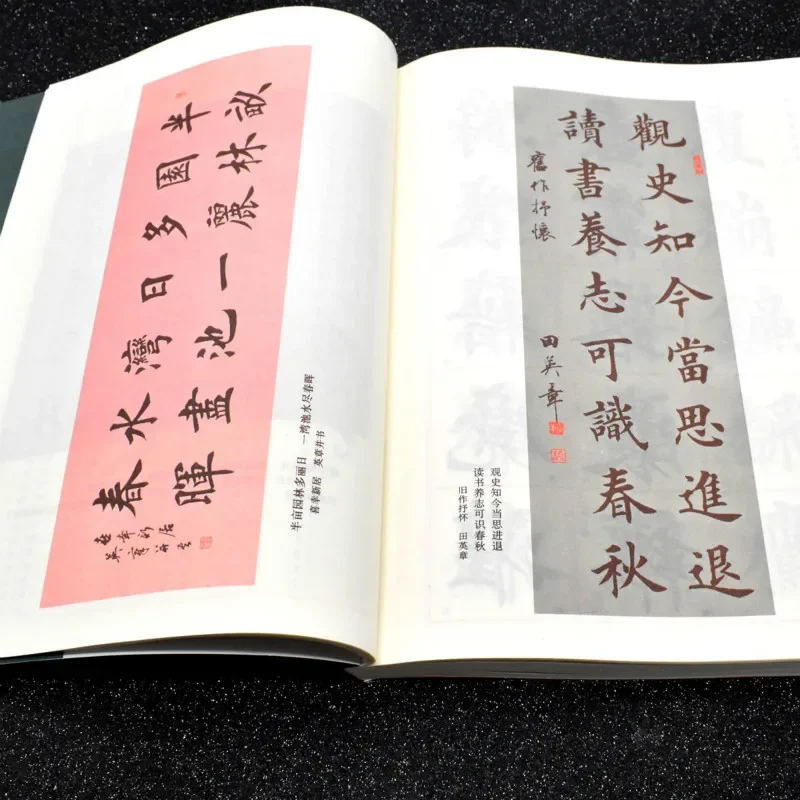 半畝
園林
多麗
日一
灣池
水盡
春暉
喜幸新居
英章并書
半亩园林多丽日 一湾池水尽春晖
喜幸新居 英章并书
觀史知今當思進退
讀書養志可識春秋
舊作抒懷 田英章
观史知今当思进退
读书养志可识春秋
旧作抒怀 田英章